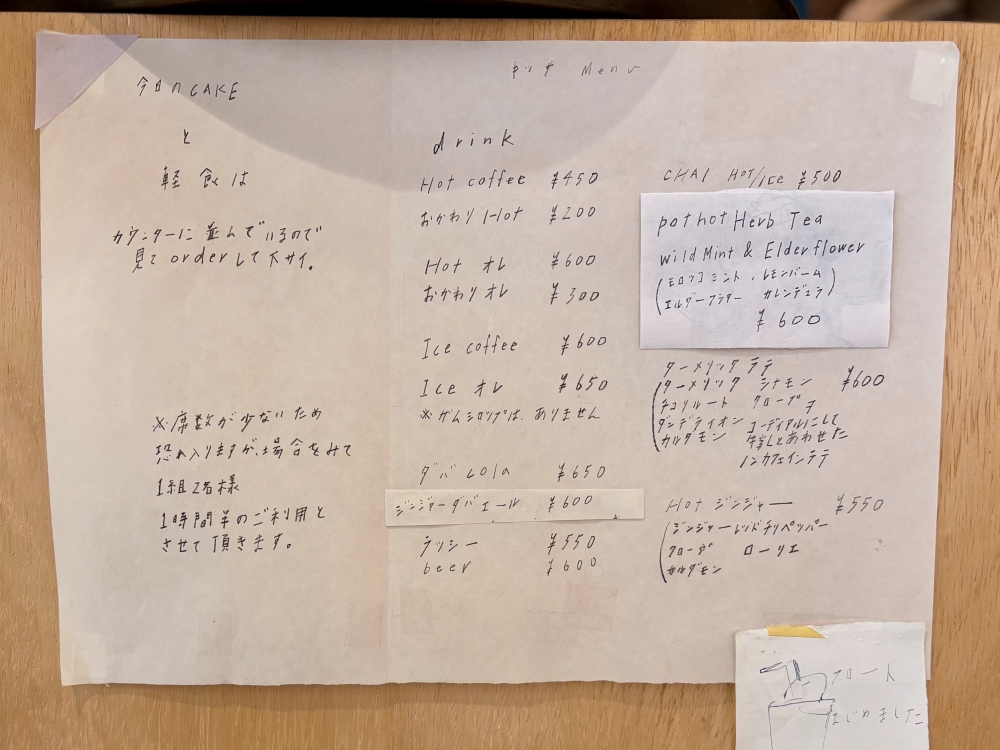 今日の CAKE
と
軽食は
カウンターに並んでいるので
見て order して下サイ。
※席数が少ないため
恐れ入りますが、場合をみて
1組2名様
1時間半のご利用と
させて頂きます。
Menu
drink
Hot coffee ¥450
おかわり Hot ¥200
Hot オレ ¥600
おかわりオレ ¥300
Ice coffee ¥600
Ice オレ ¥650
※ガムシロップは、ありません
ダバ cola ¥650
ジンジャーダバエール ¥600
ラッシー ¥550
beer ¥600
CHAI HOT/Ice ¥500
pothot Herb Tea
wild Mint & Elderflower
(モロッコミント、レモンバーム
エルダーフラワー カレンデュラ)
¥600
ターメリックラテ ¥600
(ターメリック シナモン
チコリルート クローブ ヲ
ダンデライオン コーディアルにして
カルダモン 牛乳とあわせた
ノンカフェインラテ
Hot ジンジャー ¥550
(ジンジャー レッドチリペッパー
クローブ ローリエ
カルダモン
フロート
はじめました